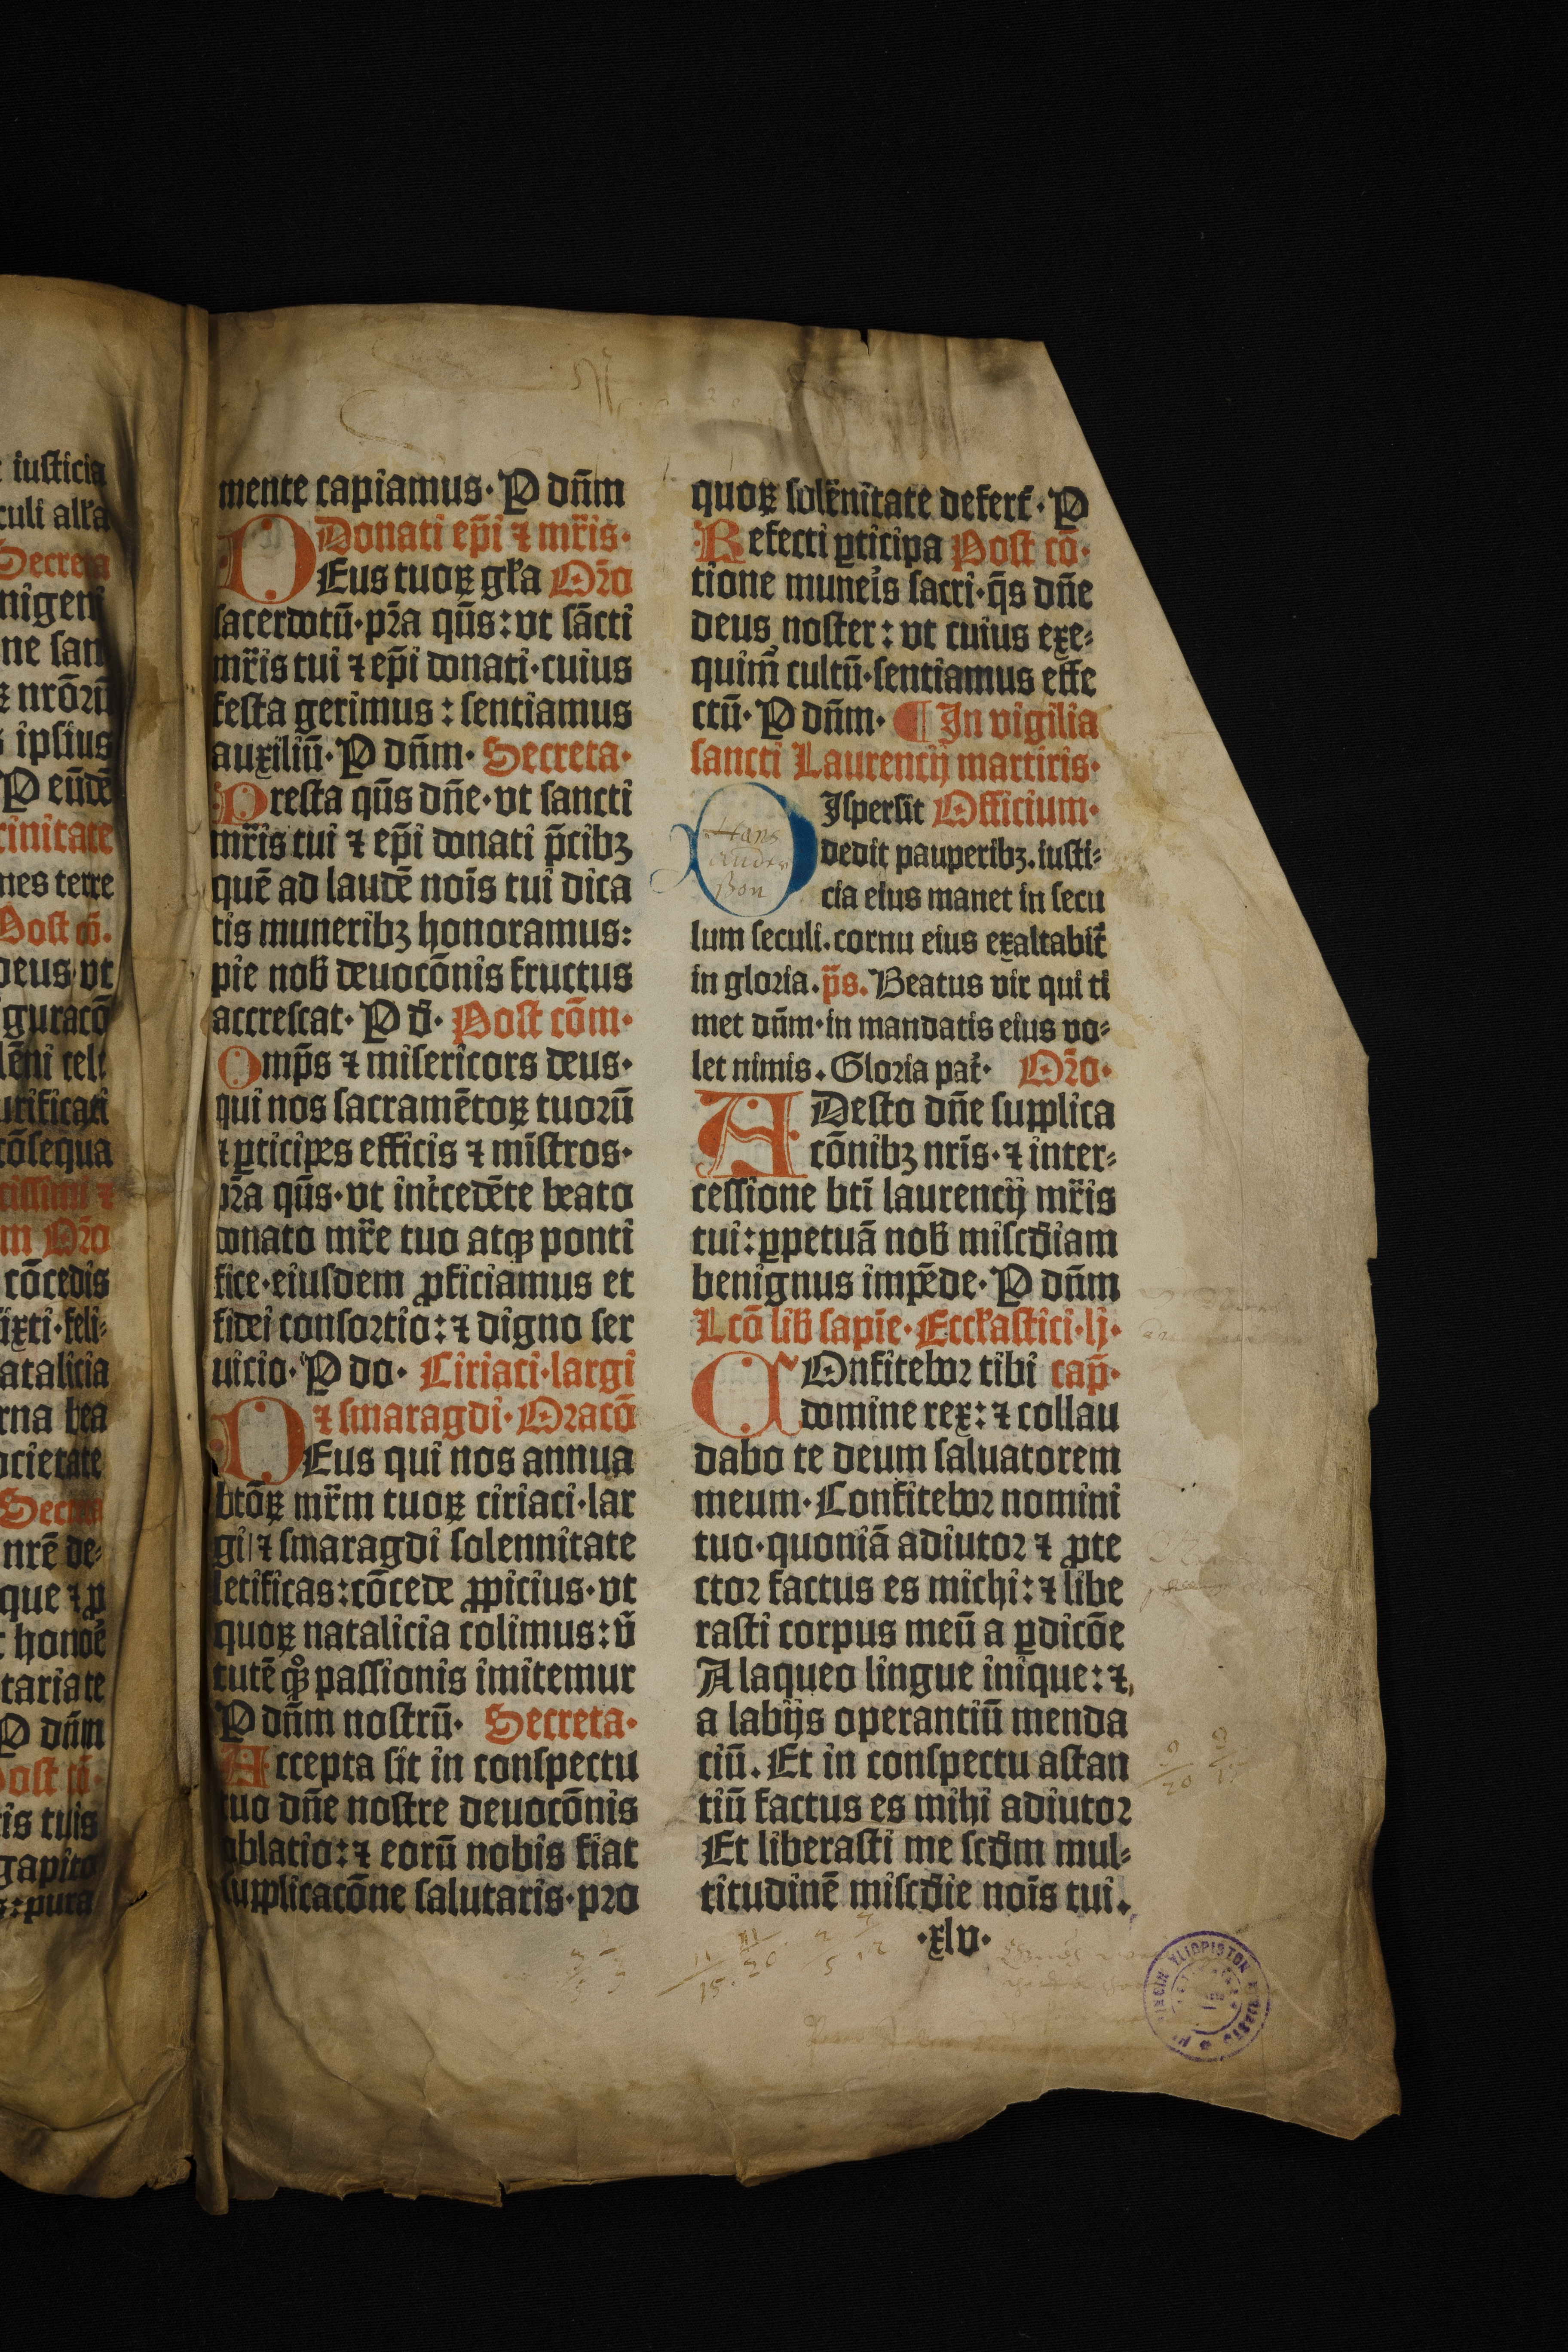 iusticia
culi all'a
Secreta
nigeni
ne san
ꝶ nrōrū
ipsius
P eūdē
trinitate
nes terre
Post cō.
deus vt
guracō
lēni cele
urificati
cōsequa
tissimi ⁊
m Oro
cōcedis
ixti·feli⸗
atalicia
rna bea
ocietate
Secreta
nrē de⸗
que ⁊ p
honorē
tariate
P dn̄m
post cō·
is tuis
gapito
s:pura
mente capiamus·P dn̄m
Donati ep̄i ⁊ mr̄is·
DEus tuoꝝ gl'a Or̄o
sacerdotū·pr̄a qūs:vt sācti
mr̄is tui ⁊ ep̄i donati·cuius
festa gerimus:sentiamus
auxiliū·P dn̄m·Secreta·
Presta qūs dn̄e·vt sancti
mr̄is tui ⁊ ep̄i donati p̄cibꝫ
quē ad laudē noīs tui dica
tis muneribꝫ honoramus:
pie nob̄ deuocōnis fructus
accrescat·P d̄·Post cōm·
Omp̄s ⁊ misericors deus·
qui nos sacramētoꝝ tuorū
⁊ ꝑticipes efficis ⁊ mīstros·
pr̄a qūs·vt int̄cedēte beato
donato mr̄e tuo atqꝫ ponti
fice·eiusdem ꝓficiamus et
fidei consortio:⁊ digno ser
uicio·P do·Ciriaci·largi
⁊ smaragdi·Oracō
DEus qui nos annua
btōꝝ mr̄m tuoꝝ ciriaci·lar
gi ⁊ smaragdi solennitate
letificas:cōcede ꝓpicius·vt
quoꝝ natalicia colimus:v̄
tutē qꝫ passionis imitemur
P dn̄m nostrū·Secreta·
Accepta sit in conspectu
tuo dn̄e nostre deuocōnis
oblatio:⁊ eorū nobis fiat
supplicacōne salutaris·pro
quoꝝ solēnitate defert̄·P
Refecti ꝑticipa Post cō·
tione muneīs sacri·q̄s dn̄e
deus noster:vt cuius exe⸗
quim̄ cultū·sentiamus effe
ctū·P dn̄m·¶ In vigilia
sancti Laurencij martiris·
DIspersit Officium·
dedit pauperibꝫ.iusti⸗
cia eius manet in secu
lum seculi.cornu eius exaltabit̄
in gloria.p̄s.Beatus vir qui ti
met dn̄m·in mandatis eius vo⸗
let nimis.Gloria pat̄·Or̄o·
ADesto dn̄e supplica
cōnibꝫ nr̄is·⁊ inter⸗
cessione btī laurencij mr̄is
tui:ꝑpetuā nob̄ miscd̄iam
benignus impēde·P dn̄m
Lcō lib̄ sapīe·Eccl'astici·lj·
COnfitebor tibi cap̄·
domine rex:⁊ collau
dabo te deum saluatorem
meum·Confitebor nomini
tuo·quoniā adiutor ⁊ ꝓte
ctor factus es michi:⁊ libe
rasti corpus meū a ꝑdicōe
A laqueo lingue inique:⁊
a labijs operantiū menda
ciū.Et in conspectu astan
tiū factus es mihi adiutor
Et liberasti me scd̄m mul⸗
titudinē miscd̄ie noīs tui.
·xlv·